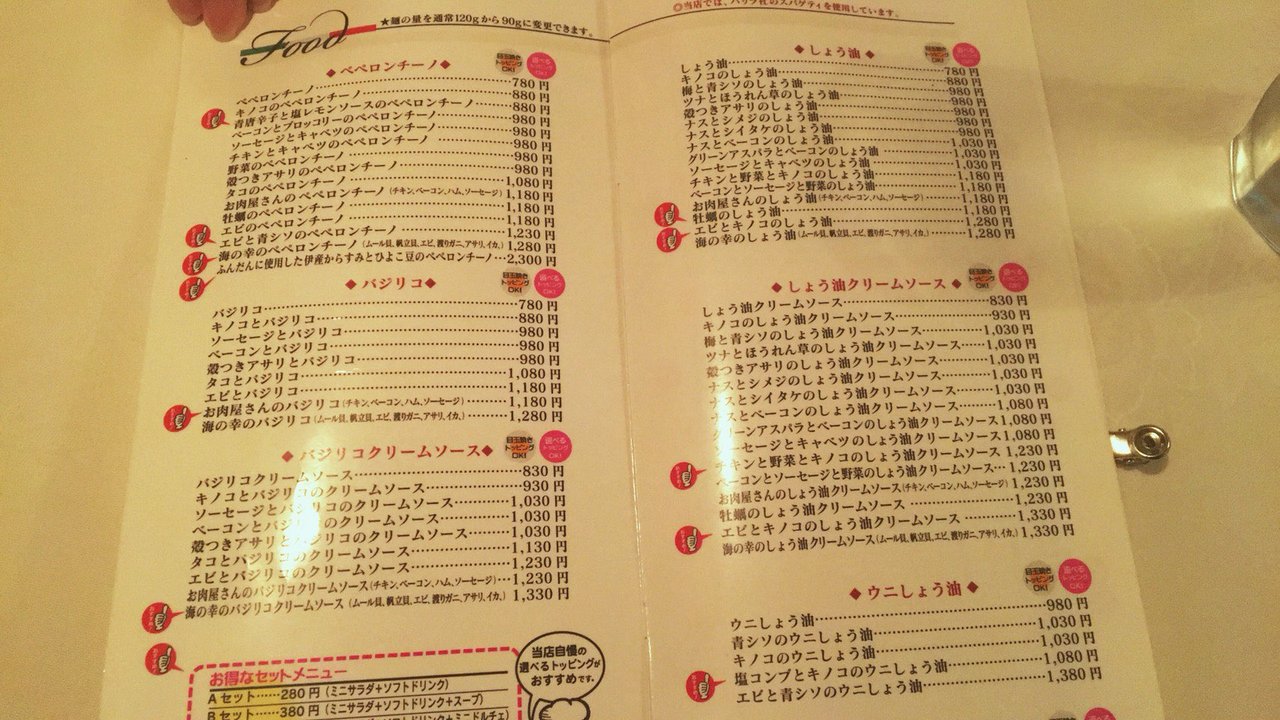 Food
★麺の量を通常120gから90gに変更できます。
◆ペペロンチーノ◆
目玉焼きトッピングOK!
選べるトッピングOK!
ペペロンチーノ……780円
キノコのペペロンチーノ……880円
青唐辛子と塩レモンソースのペペロンチーノ……880円
ベーコンとブロッコリーのペペロンチーノ……980円
ソーセージとキャベツのペペロンチーノ……980円
チキンとキャベツのペペロンチーノ……980円
野菜のペペロンチーノ……980円
殻つきアサリのペペロンチーノ……980円
タコのペペロンチーノ……1,080円
お肉屋さんのペペロンチーノ(チキン、ベーコン、ハム、ソーセージ)……1,180円
牡蠣のペペロンチーノ……1,180円
エビのペペロンチーノ……1,180円
エビと青シソのペペロンチーノ……1,230円
海の幸のペペロンチーノ(ムール貝、帆立貝、エビ、渡りガニ、アサリ、イカ、)……1,280円
ふんだんに使用した伊産からすみとひよこ豆のペペロンチーノ…2,300円
◆バジリコ◆
目玉焼きトッピングOK!
選べるトッピングOK!
バジリコ……780円
キノコとバジリコ……880円
ソーセージとバジリコ……980円
ベーコンとバジリコ……980円
殻つきアサリとバジリコ……980円
タコとバジリコ……1,080円
エビとバジリコ……1,180円
お肉屋さんのバジリコ(チキン、ベーコン、ハム、ソーセージ)……1,180円
海の幸のバジリコ(ムール貝、帆立貝、エビ、渡りガニ、アサリ、イカ、)……1,280円
◆バジリコクリームソース◆
目玉焼きトッピングOK!
選べるトッピングOK!
バジリコクリームソース……830円
キノコとバジリコのクリームソース……930円
ソーセージとバジリコのクリームソース……1,030円
ベーコンとバジリコのクリームソース……1,030円
殻つきアサリとバジリコのクリームソース……1,030円
タコとバジリコのクリームソース……1,130円
エビとバジリコのクリームソース……1,230円
お肉屋さんのバジリコクリームソース(チキン、ベーコン、ハム、ソーセージ)…1,230円
海の幸のバジリコクリームソース(ムール貝、帆立貝、エビ、渡りガニ、アサリ、イカ、)1,330円
お得なセットメニュー
Aセット……280円(ミニサラダ+ソフトドリンク)
Bセット……380円(ミニサラダ+ソフトドリンク+スープ)
ソフトドリンク+ミニドルチェ)
当店自慢の
選べるトッピングが
おすすめです。
◎当店では、バリラ社のスパゲティを使用しています。
◆しょう油◆
目玉焼きトッピングOK!
選べるトッピングOK!
しょう油……780円
キノコのしょう油……880円
梅と青シソのしょう油……980円
ツナとほうれん草のしょう油……980円
殻つきアサリのしょう油……980円
ナスとシメジのしょう油……980円
ナスとシイタケのしょう油……980円
ナスとベーコンのしょう油……1,030円
グリーンアスパラとベーコンのしょう油……1,030円
ソーセージとキャベツのしょう油……1,030円
チキンと野菜とキノコのしょう油……1,180円
ベーコンとソーセージと野菜のしょう油……1,180円
お肉屋さんのしょう油(チキン、ベーコン、ハム、ソーセージ)……1,180円
牡蠣のしょう油……1,180円
エビとキノコのしょう油……1,280円
海の幸のしょう油(ムール貝、帆立貝、エビ、渡りガニ、アサリ、イカ、)……1,280円
◆しょう油クリームソース◆
目玉焼きトッピングOK!
選べるトッピングOK!
しょう油クリームソース……830円
キノコのしょう油クリームソース……930円
梅と青シソのしょう油クリームソース……1,030円
ツナとほうれん草のしょう油クリームソース……1,030円
殻つきアサリのしょう油クリームソース……1,030円
ナスとシメジのしょう油クリームソース……1,030円
ナスとシイタケのしょう油クリームソース……1,030円
ナスとベーコンのしょう油クリームソース……1,080円
グリーンアスパラとベーコンのしょう油クリームソース1,080円
ソーセージとキャベツのしょう油クリームソース……1,080円
チキンと野菜とキノコのしょう油クリームソース……1,230円
ベーコンとソーセージと野菜のしょう油クリームソース…1,230円
お肉屋さんのしょう油クリームソース(チキン、ベーコン、ハム、ソーセージ)1,230円
牡蠣のしょう油クリームソース……1,230円
エビとキノコのしょう油クリームソース……1,330円
海の幸のしょう油クリームソース(ムール貝、帆立貝、エビ、渡りガニ、アサリ、イカ、)1,330円
◆ウニしょう油◆
目玉焼きトッピングOK!
選べるトッピングOK!
ウニしょう油……980円
青シソのウニしょう油……1,030円
キノコのウニしょう油……1,030円
塩コンブとキノコのウニしょう油……1,080円
エビと青シソのウニしょう油……1,380円